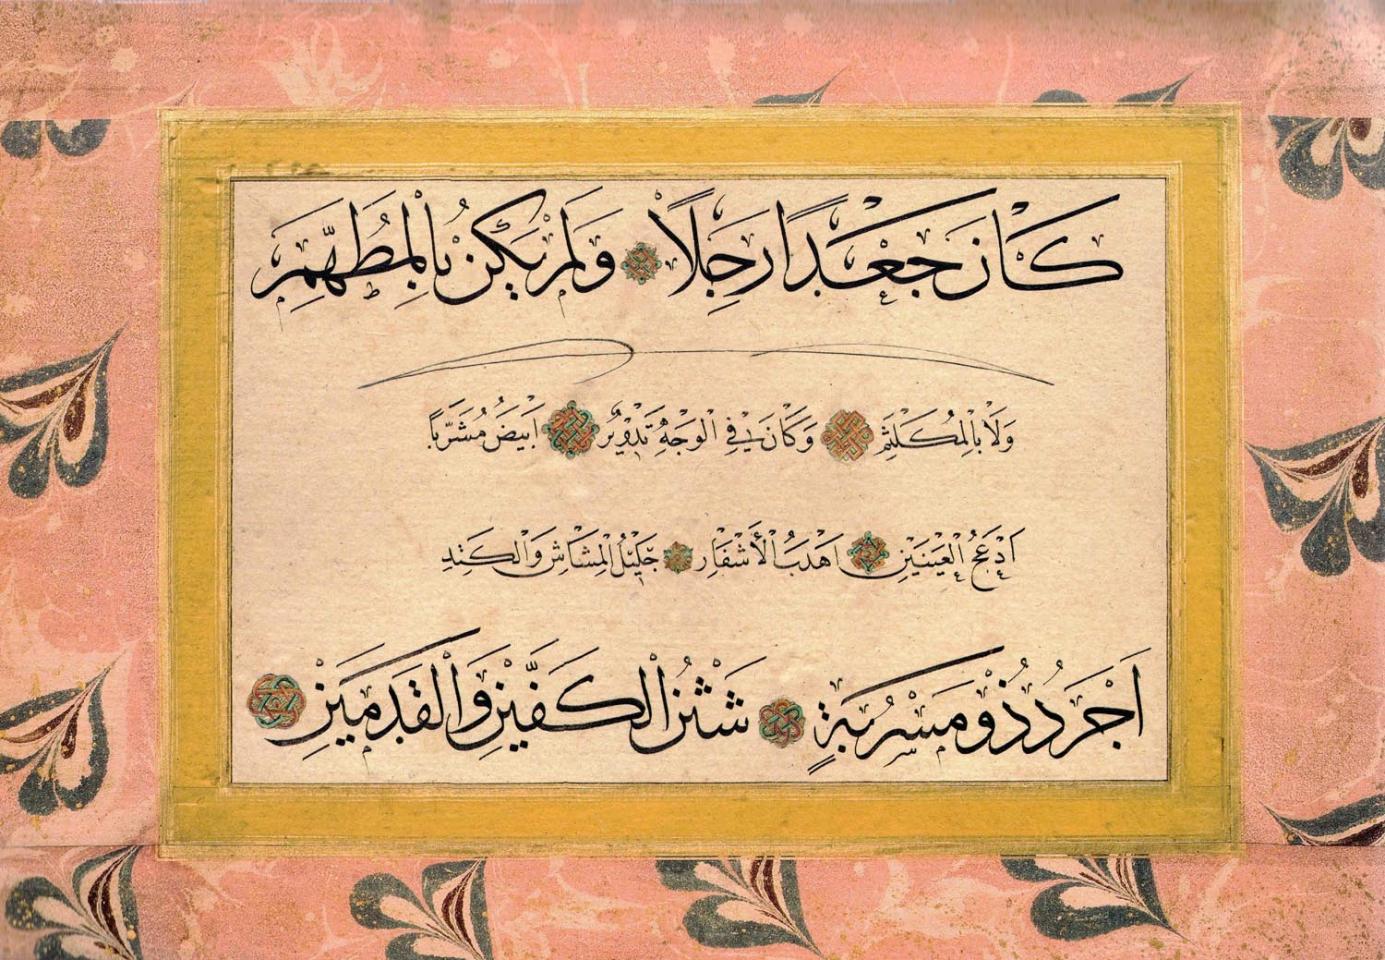 كَانَ جَعْدًا رَجِلًا وَلَمْ يَكُنْ بِالْمُطَهَّمِ
وَلَا بِالْمُكَلْثَمِ وَكَانَ فِي الْوَجْهِ تَدْوِيرٌ اَبْيَضُ مُشَرَّبًا
اَدْعَجُ الْعَيْنَيْنِ اَهْدَبُ الْأَشْفَارِ جَلِيلُ الْمُشَاشِ وَالْكَتَدِ
اَجْرَدُ ذُو مَسْرُبَةٍ شَثْنُ الْكَفَّيْنِ وَالْقَدَمَيْنِ